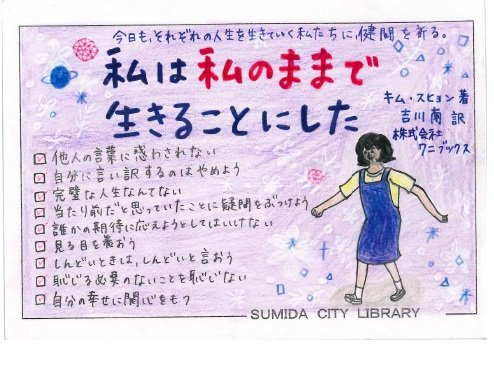 今日も、それぞれの人生を生きていく私たちに、健闘を祈る。
私は私のままで
生きることにした
キム・スヒョン 著
吉川南 訳
株式会社
ワニブックス
他人の言葉に惑わされない
自分に言い訳するのはやめよう
完璧な人生なんてない
当たり前だと思っていたことに疑問をぶつけよう
誰かの期待に応えようとしてはいけない
見る目を養おう
しんどいときは、しんどいと言おう
恥じる必要のないことを恥じない
自分の幸せに関心をもつ
SUMIDA CITY LIBRARY